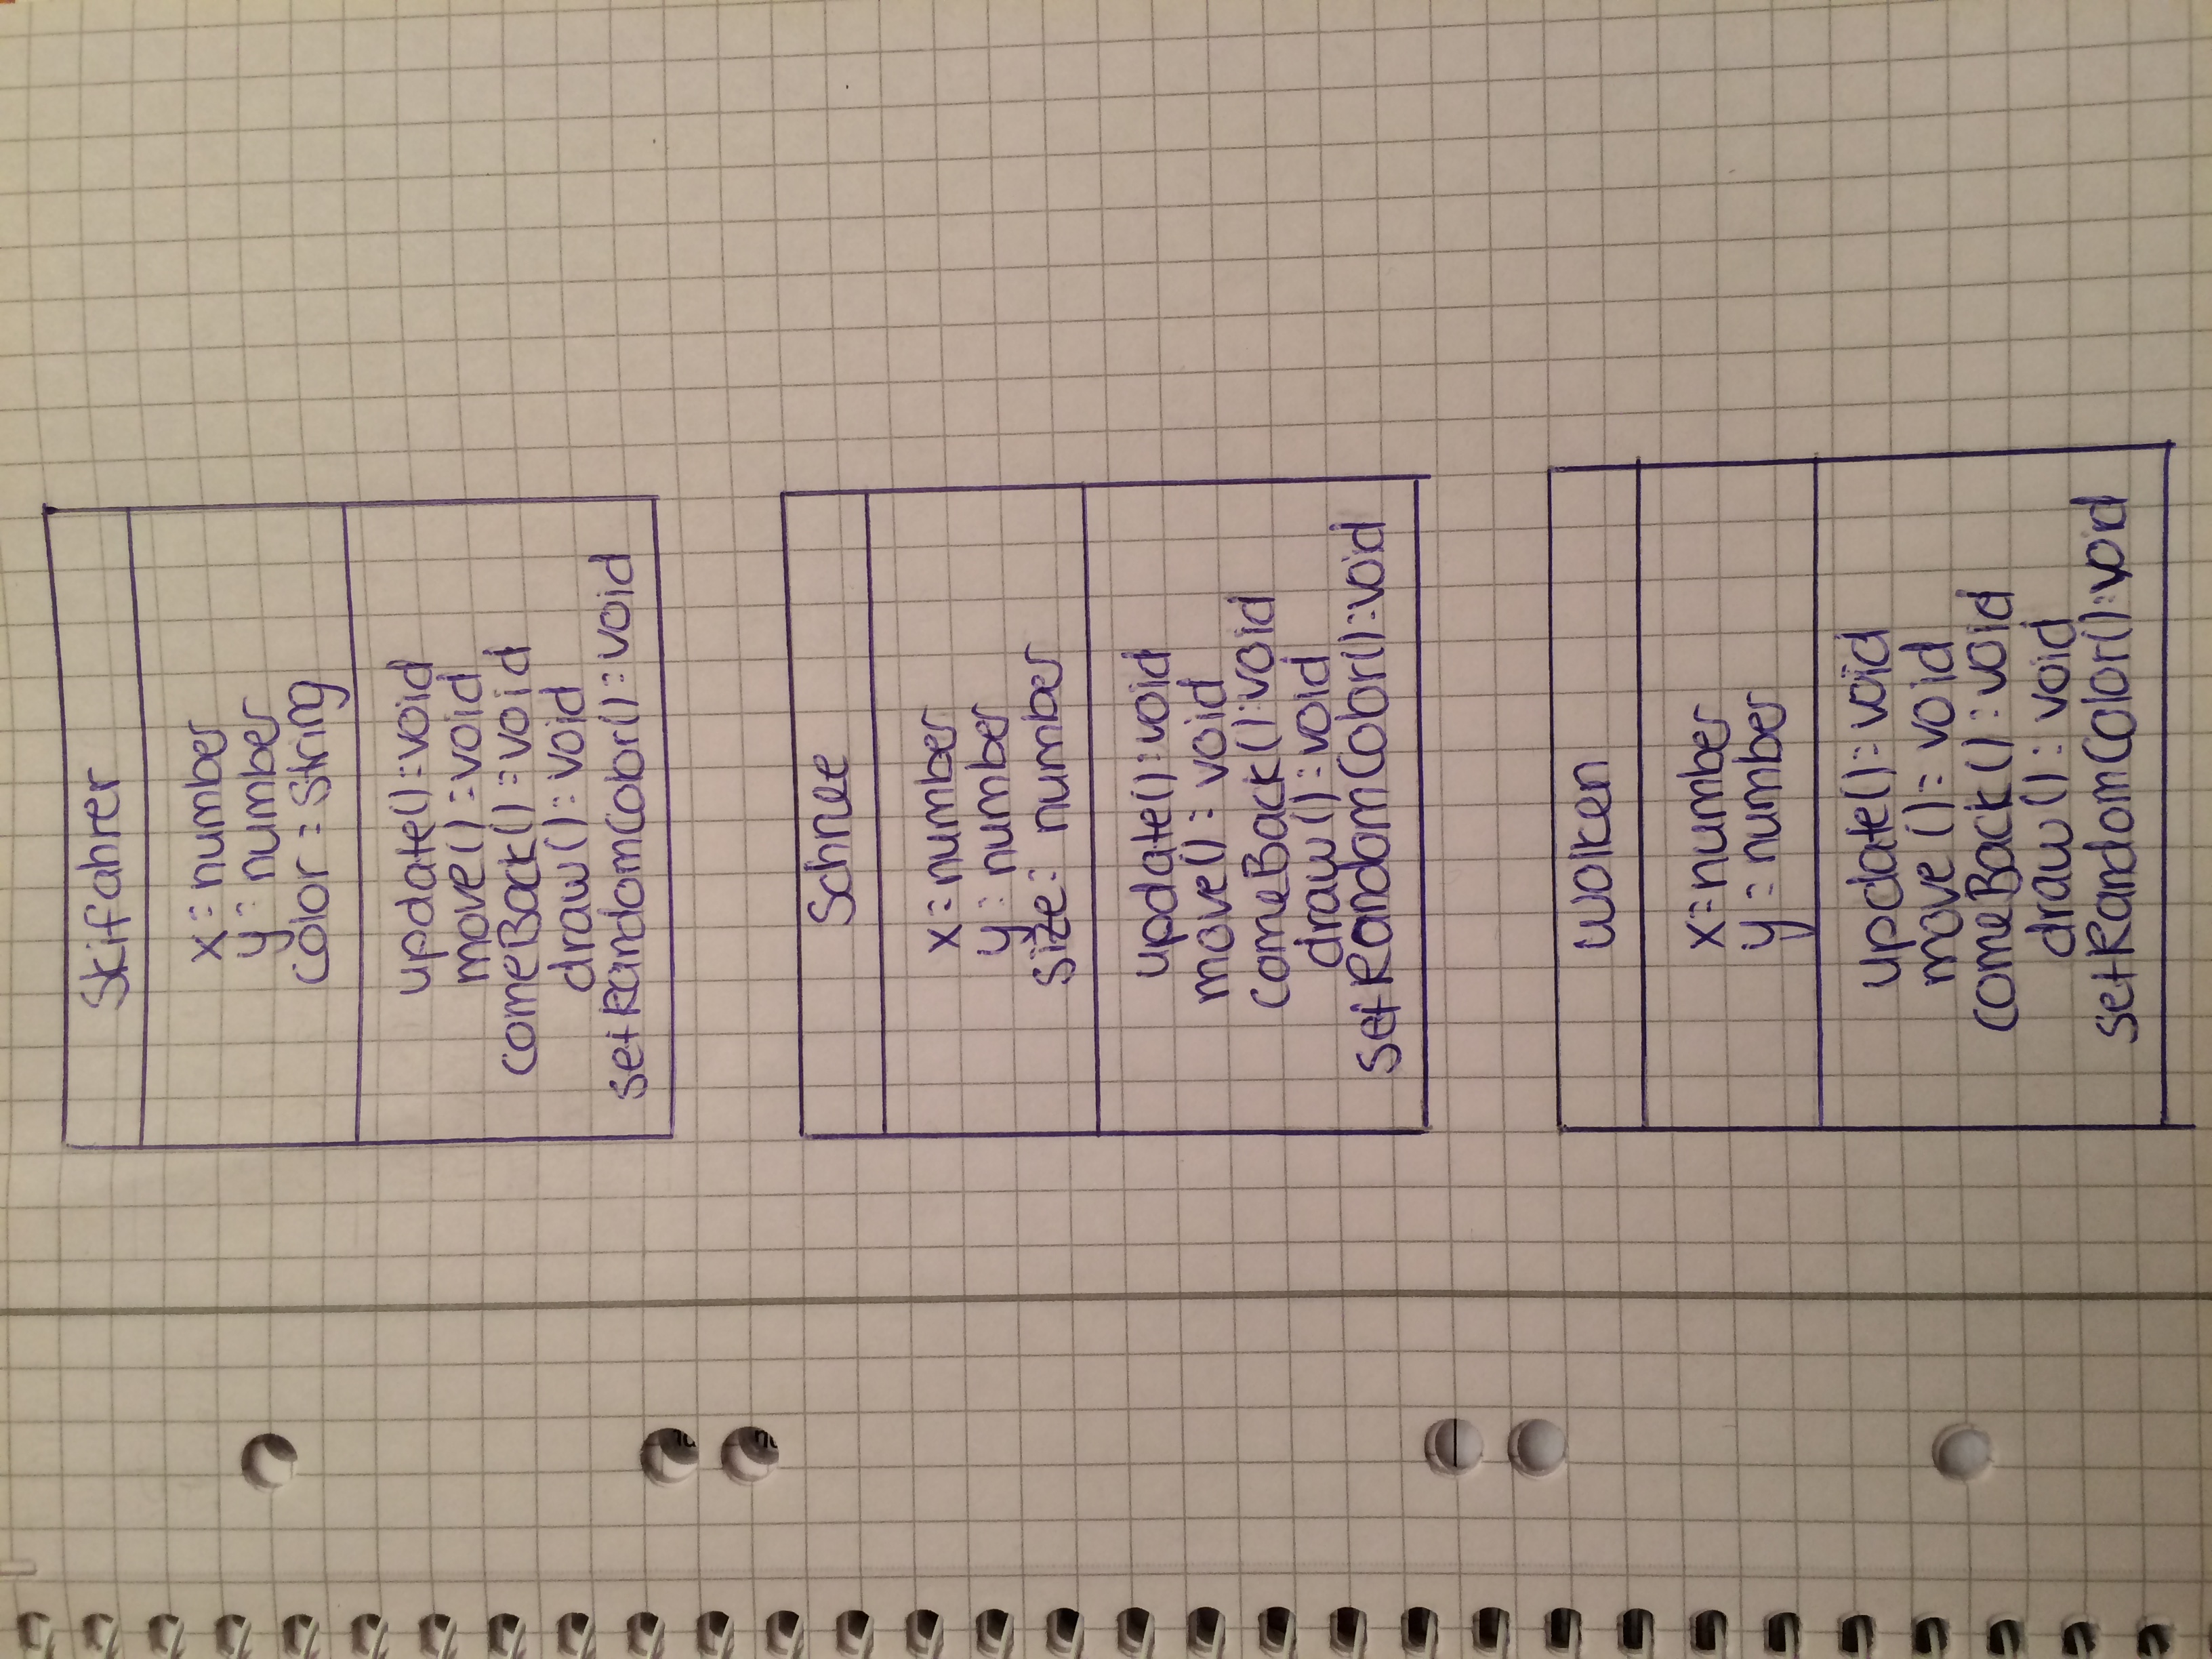 Skifahrer
x: number
y: number
color: string
update(): void
move(): void
comeBack(): void
draw(): void
setRandomColor(): void
Schnee
x: number
y: number
size: number
update(): void
move(): void
comeBack(): void
draw(): void
setRandomColor(): void
Wolken
x: number
y: number
update(): void
move(): void
comeBack(): void
draw(): void
setRandomColor(): void